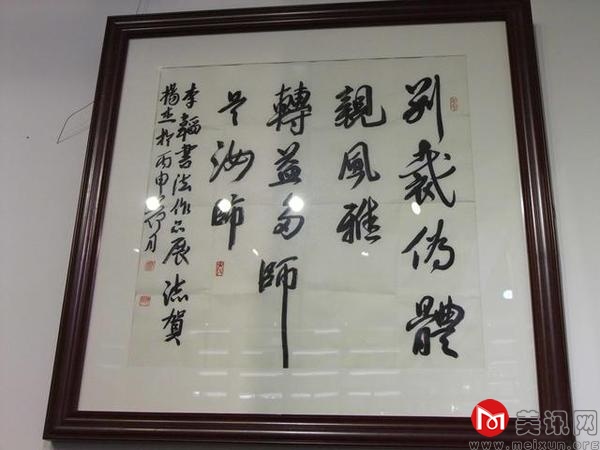 別裁偽體
親風雅
轉益多師
是汝師
李韜書法作品展誌賀
楊 於丙申 月
美讯网
www.meixun.org